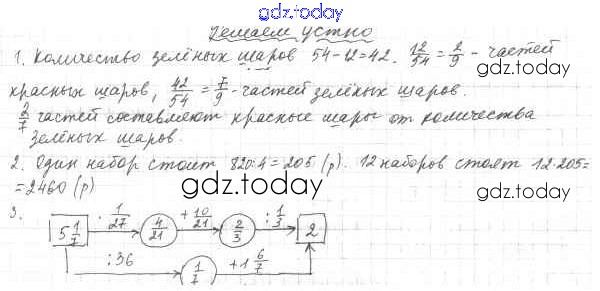 gdz.today
Решаем устно
1. Количество зелёных шаров 54-12=42. 12/54 = 2/9 - частей
gdz.today
красных шаров, 42/54 = 7/9 - частей зелёных шаров.
2/7 частей составляют красные шары от количества
зелёных шаров.
2. Один набор стоит 820:4=205 (р). 12 наборов стоят 12·205=
=2460 (р)
gdz.today
gdz.today
3. 5 1/7 · 1/27 4/21 + 10/21 2/3 : 1/3 2
:36 1/7 +1 6/7
gdz.today